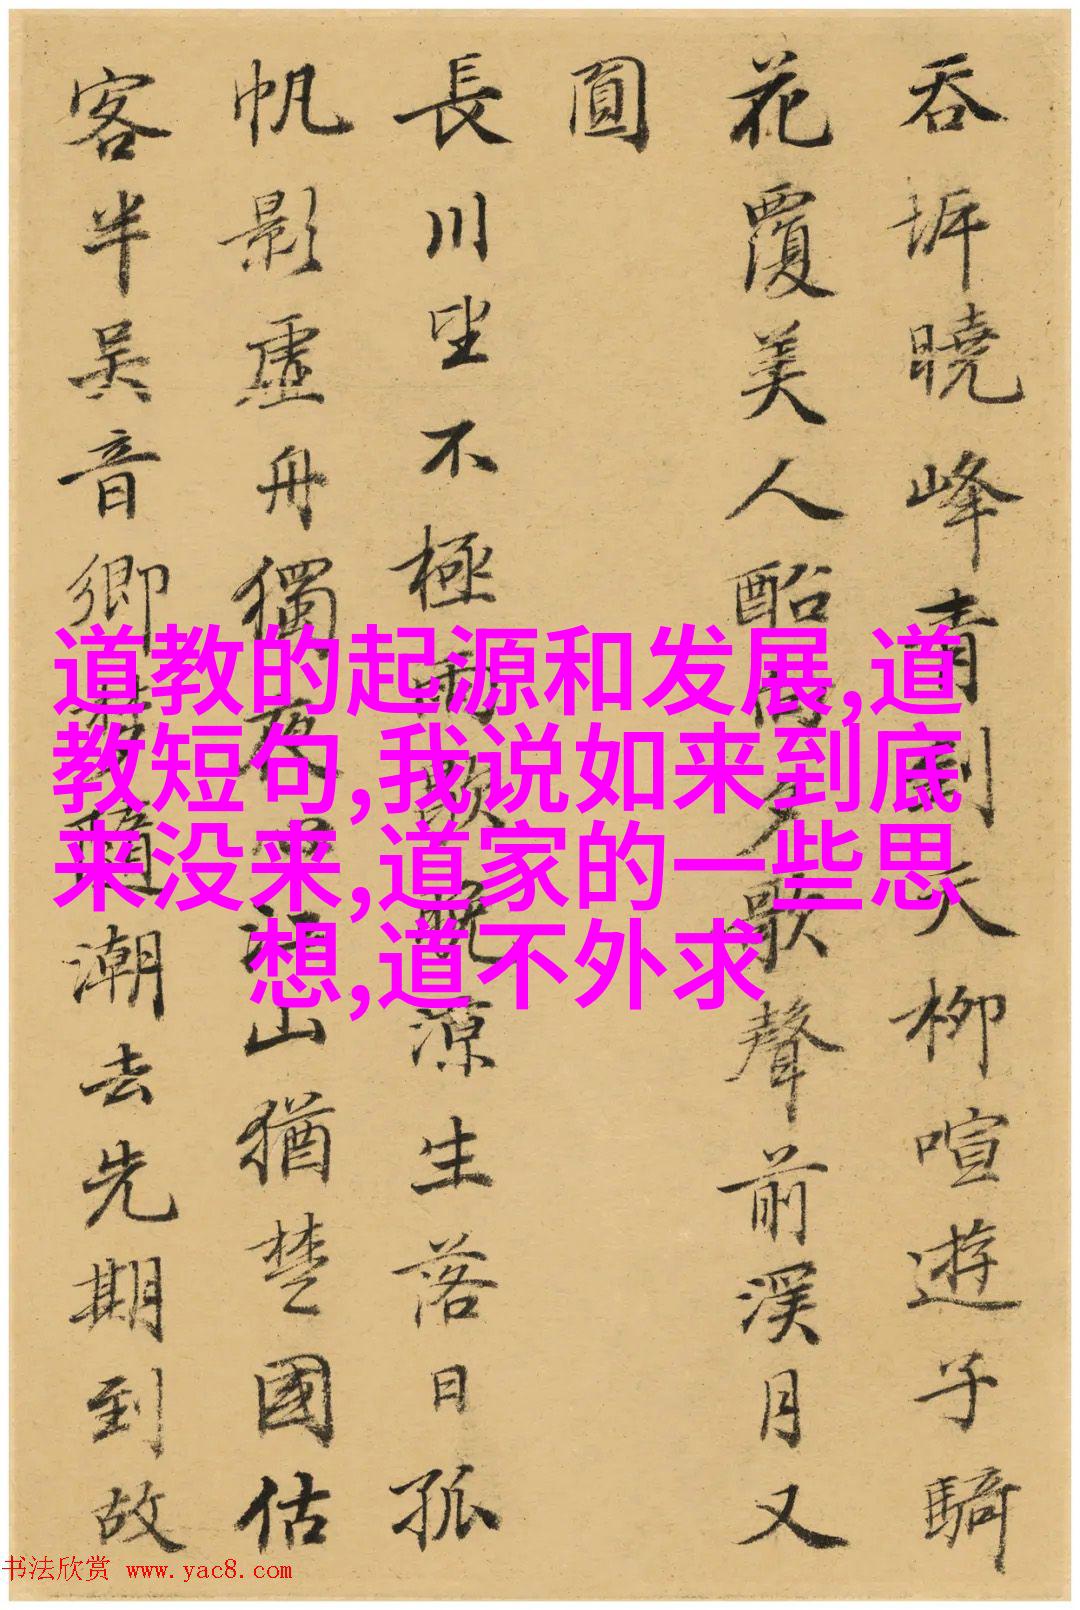 吞坼曉峰青到天柳喧遊子騎
花覆美人船向夕歌聲前溪月又
圓
長川坐不極雨歇晚涼生落日孤
帆影虛舟獨夜心江山猶楚國估
客半吳音鄉夢隨潮去先期到故
道教的起源和发展,道
教短句,我说如来到底
来没来,道家的一些思
想,道不外求
书法欣赏 www.yac8.com